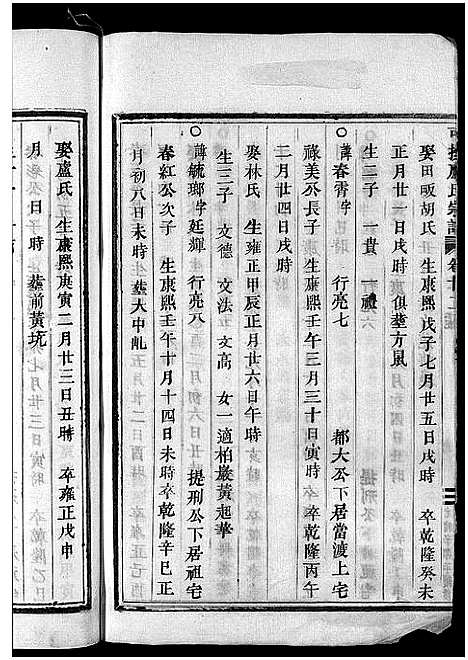 娶田畈胡氏 生康熙戊子七月廿五日戌時 卒乾隆癸未
正月廿一日戌時 俱塟方風
生二子 一貴 一祿
○諱春霄字 行亮七 都大公下居當渡上宅
祿美公長子 生康熙壬午三月三十日寅時 卒乾隆丙午
二月廿四日戌時
娶林氏 生雍正甲辰正月廿六日午時
生三子 文德 文法 文高 女一適柏巖黃起華
○諱毓瑯字廷輝 行亮八 提刑公下居祖宅
春紅公次子 生康熙壬午十月十四日未時 卒乾隆辛巳正
月初八日未時 塟大中乢
娶盧氏 生康熙庚寅二月廿三日丑時 卒雍正戊申
月 日時 塟前黃坑